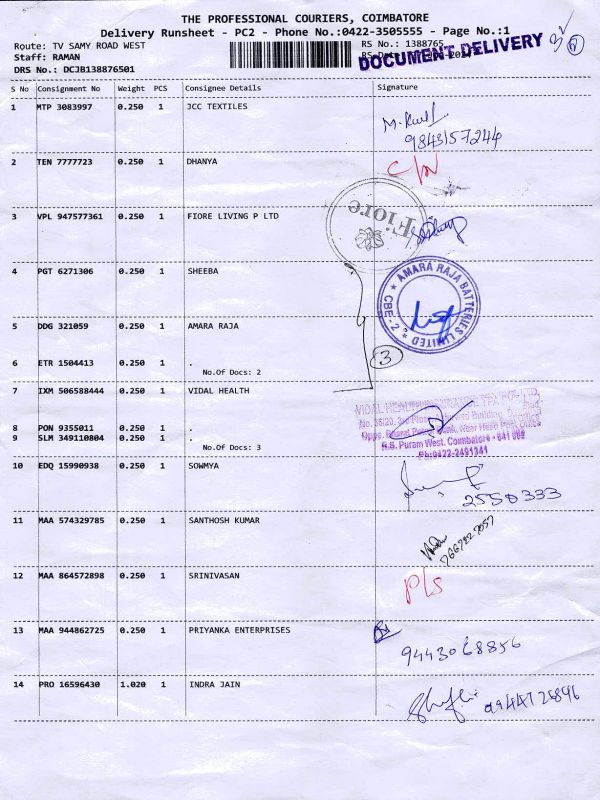 THE PROFESSIONAL COURIERS, COIMBATORE
Delivery Runsheet - PC2 - Phone No.:0422-3505555 - Page No.:1
Route: TV SAMY ROAD WEST
Staff: RAMAN
DRS No.: DCJB138876501
RS No.: 1388765
DOCUMENT DELIVERY
S No Consignment No Weight PCS Consignee Details Signature
1 MTP 3083997 0.250 1 JCC TEXTILES
9843157244
2 TEN 7777723 0.250 1 DHANYA
3 VPL 947577361 0.250 1 FIORE LIVING P LTD
Fiore
4 PGT 6271306 0.250 1 SHEEBA
AMARA RAJA BATTERIES LIMITED * CBE-2 *
5 DDG 321059 0.250 1 AMARA RAJA
6 ETR 1504413 0.250 1 .
No.Of Docs: 2
3
7 IXM 506588444 0.250 1 VIDAL HEALTH
8 PON 9355011 0.250 1 .
9 SLM 349110804 0.250 1 .
No.Of Docs: 3
VIDAL HEALTH
R.S. Puram West, Coimbatore - 641 002
Ph:0422-2491341
10 EDQ 15990938 0.250 1 SOWMYA
2550333
11 MAA 574329785 0.250 1 SANTHOSH KUMAR
12 MAA 864572898 0.250 1 SRINIVASAN
P/s
13 MAA 944862725 0.250 1 PRIYANKA ENTERPRISES
9443068856
14 PRO 16596430 1.020 1 INDRA JAIN